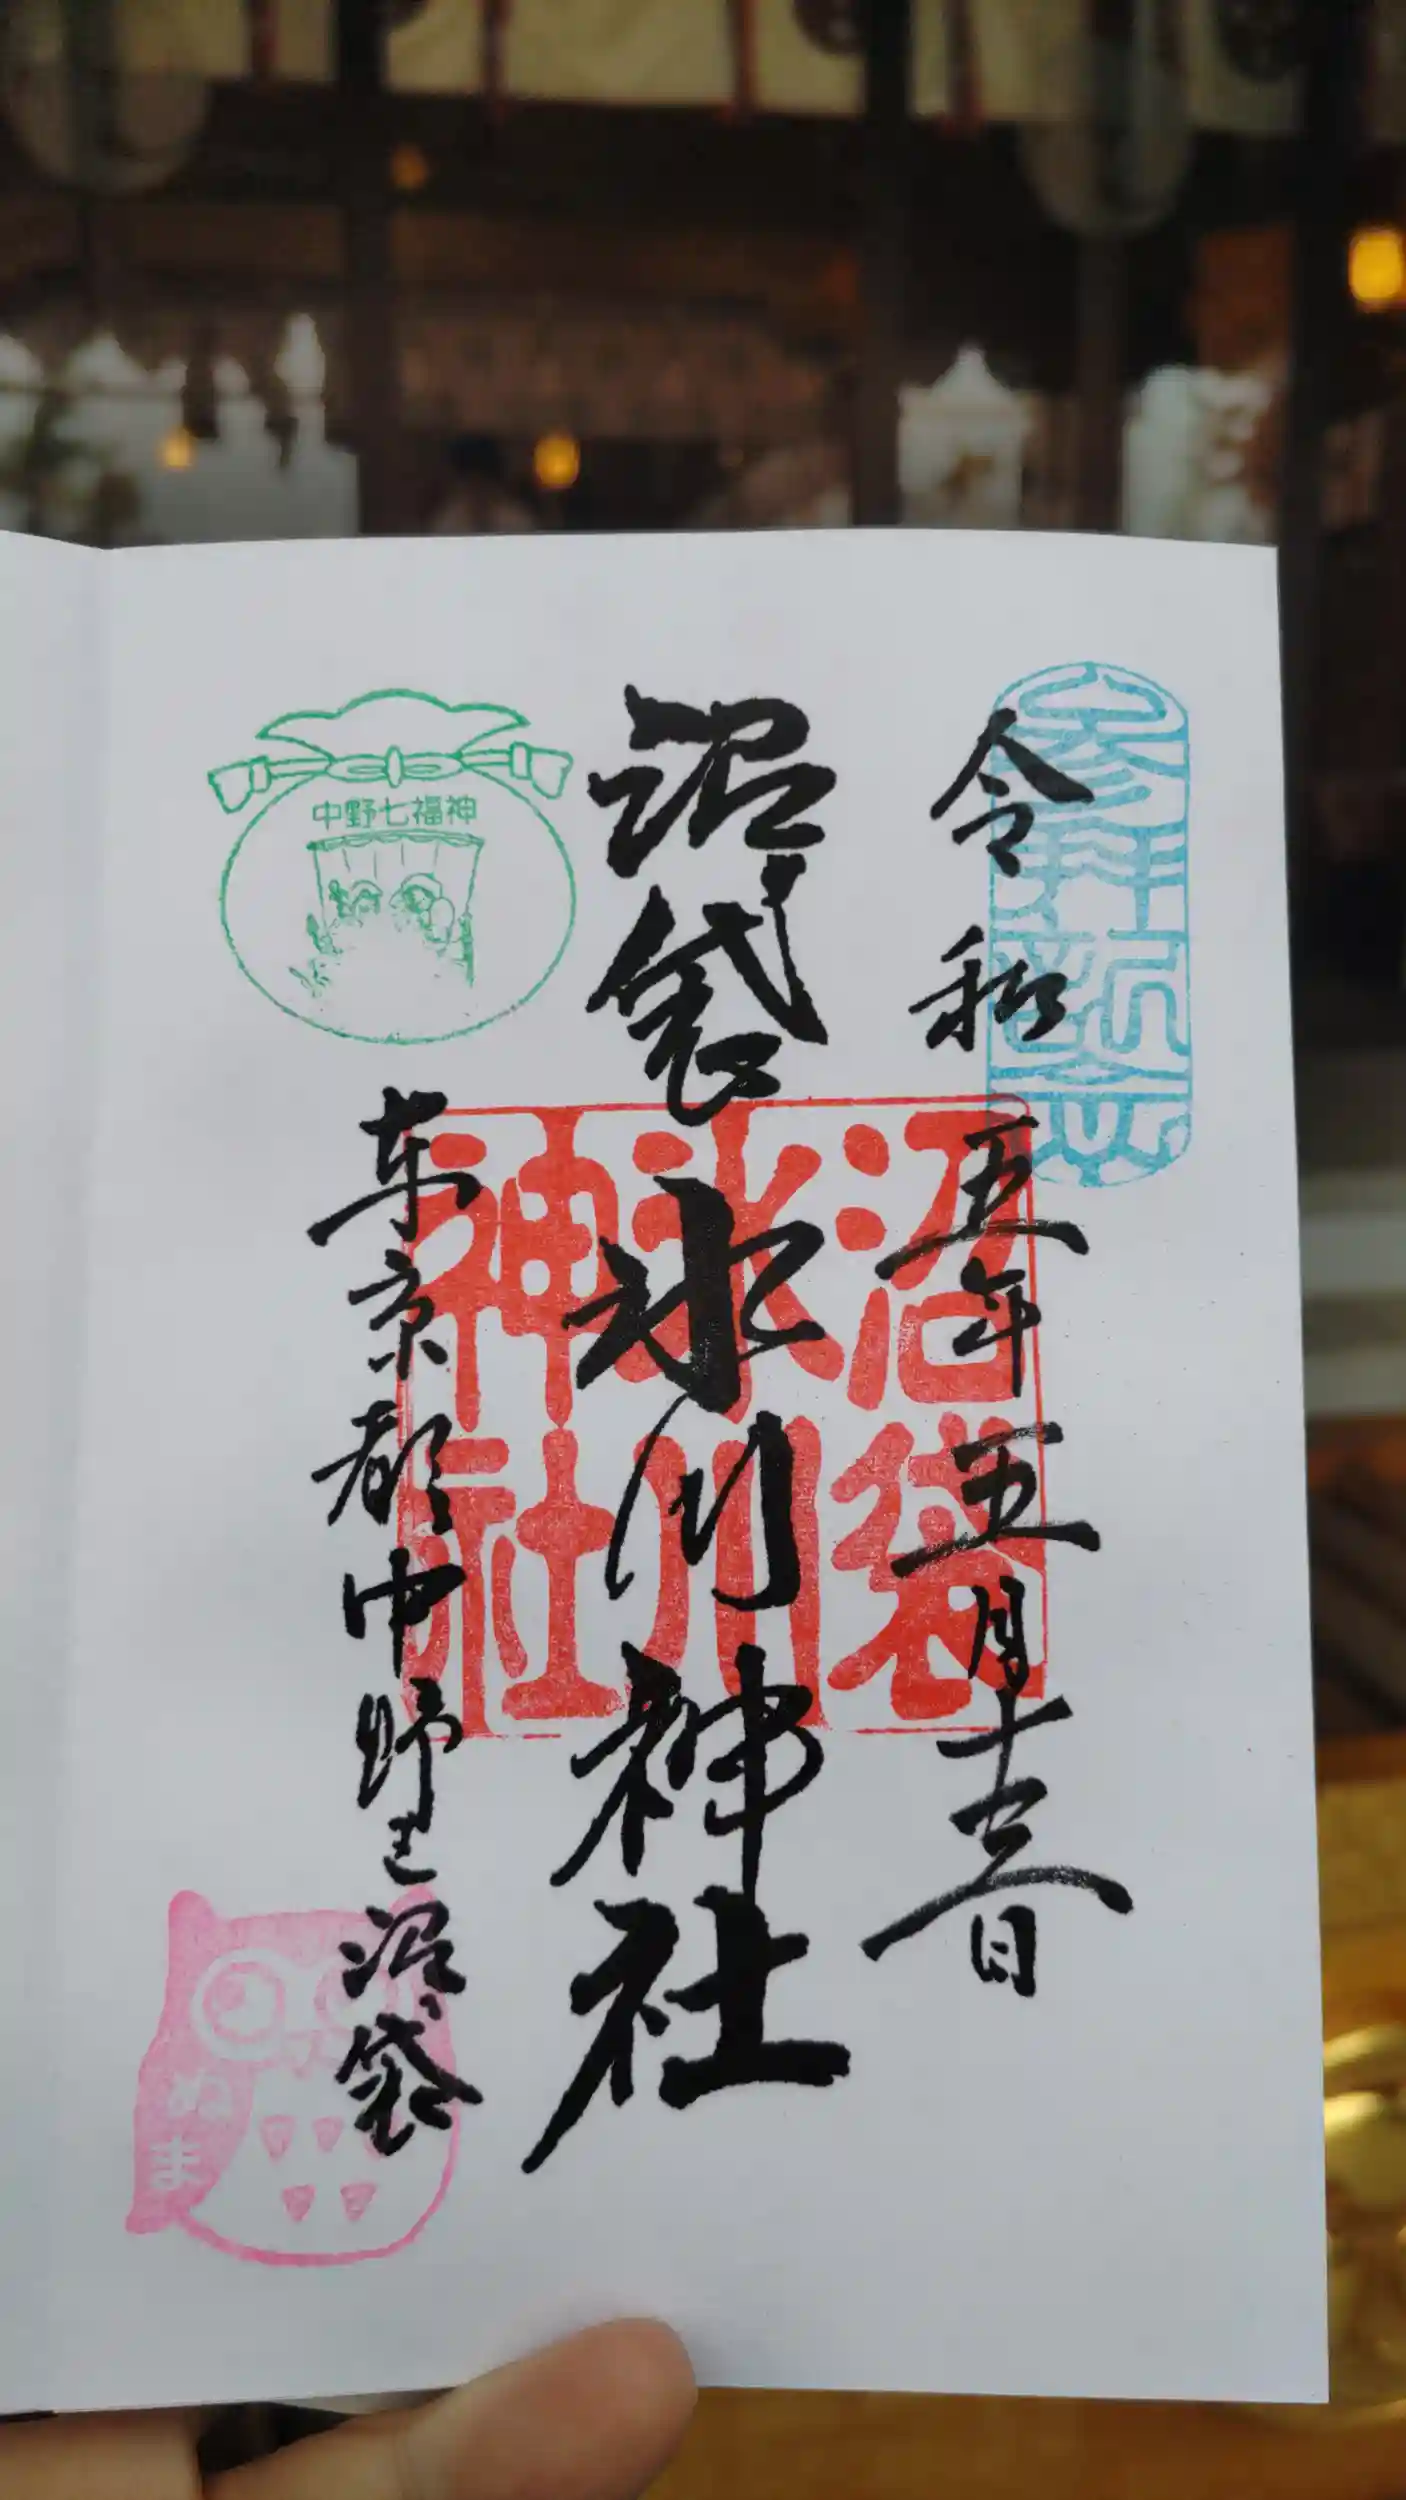 令和五年五月十三日
沼袋氷川神社
沼袋
氷川
神社
中野七福神
東京都中野区沼袋
ぬま